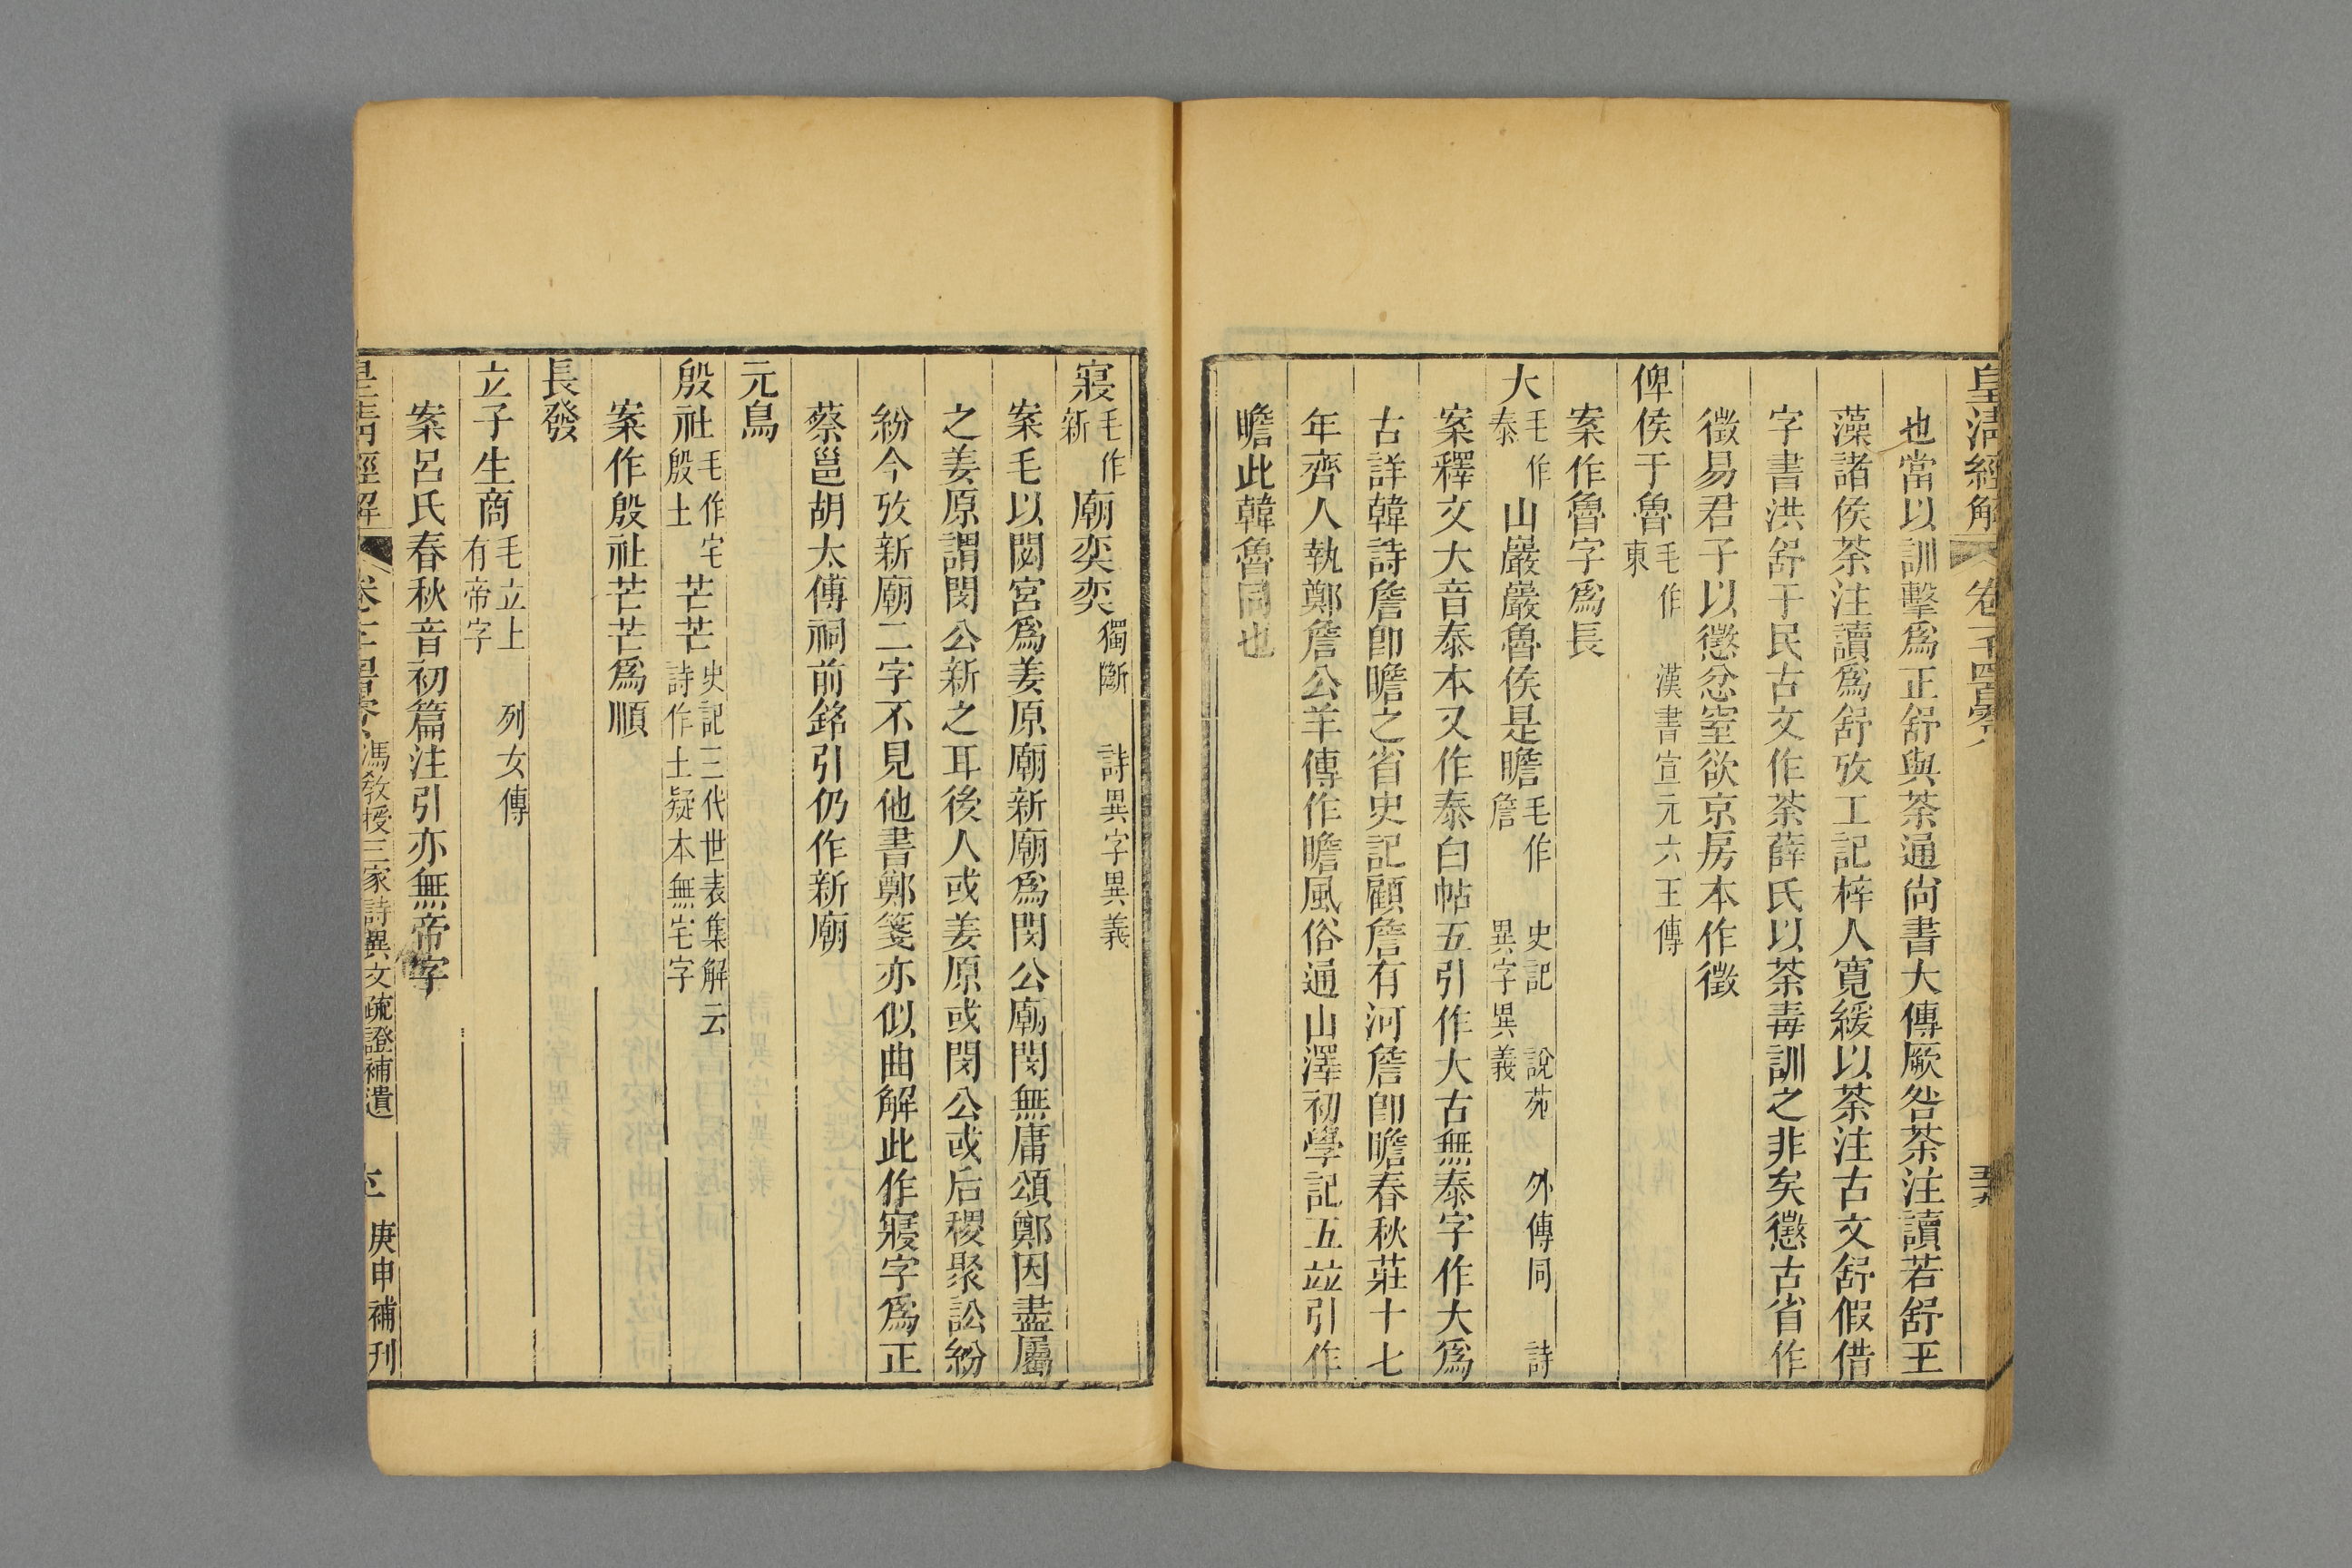 皇清經解 卷一千四百零八
也當以訓擊爲正舒與荼通尚書大傳厥咎荼注讀若舒玉
藻諸侯荼注讀爲舒攷工記梓人寬緩以荼注古文舒假借
字書洪舒于民古文作荼薛氏以荼毒訓之非矣懲古省作
徵易君子以懲忿窒欲京房本作徵
俾侯于魯毛作東 漢書宣元六王傳
案作魯字爲長
大毛作泰山巖巖魯侯是瞻毛作詹 史記 說苑 外傳同 詩異字異義
案釋文大音泰本又作泰白帖五引作大古無泰字作大爲
古詳韓詩詹卽瞻之省史記顧詹有河詹卽瞻春秋莊十七
年齊人執鄭詹公羊傳作瞻風俗通山澤初學記五竝引作
瞻此韓魯同也
寢毛作新廟奕奕獨斷 詩異字異義
案毛以閟宮爲姜原廟新廟爲閔公廟閔無庸頌鄭因盡屬
之姜原謂閔公新之耳後人或姜原或閔公或后稷聚訟紛
紛今攷新廟二字不見他書鄭箋亦似曲解此作寢字爲正
蔡邕胡太傅祠前銘引仍作新廟
元鳥
殷社毛作宅殷土芒芒史記三代世表集解云詩作土疑本無宅字
案作殷社芒芒爲順
長發
立子生商毛立上有帝字 列女傳
案呂氏春秋音初篇注引亦無帝字
皇清經解 馮敎授三家詩異文疏證補遺 庚申補刊